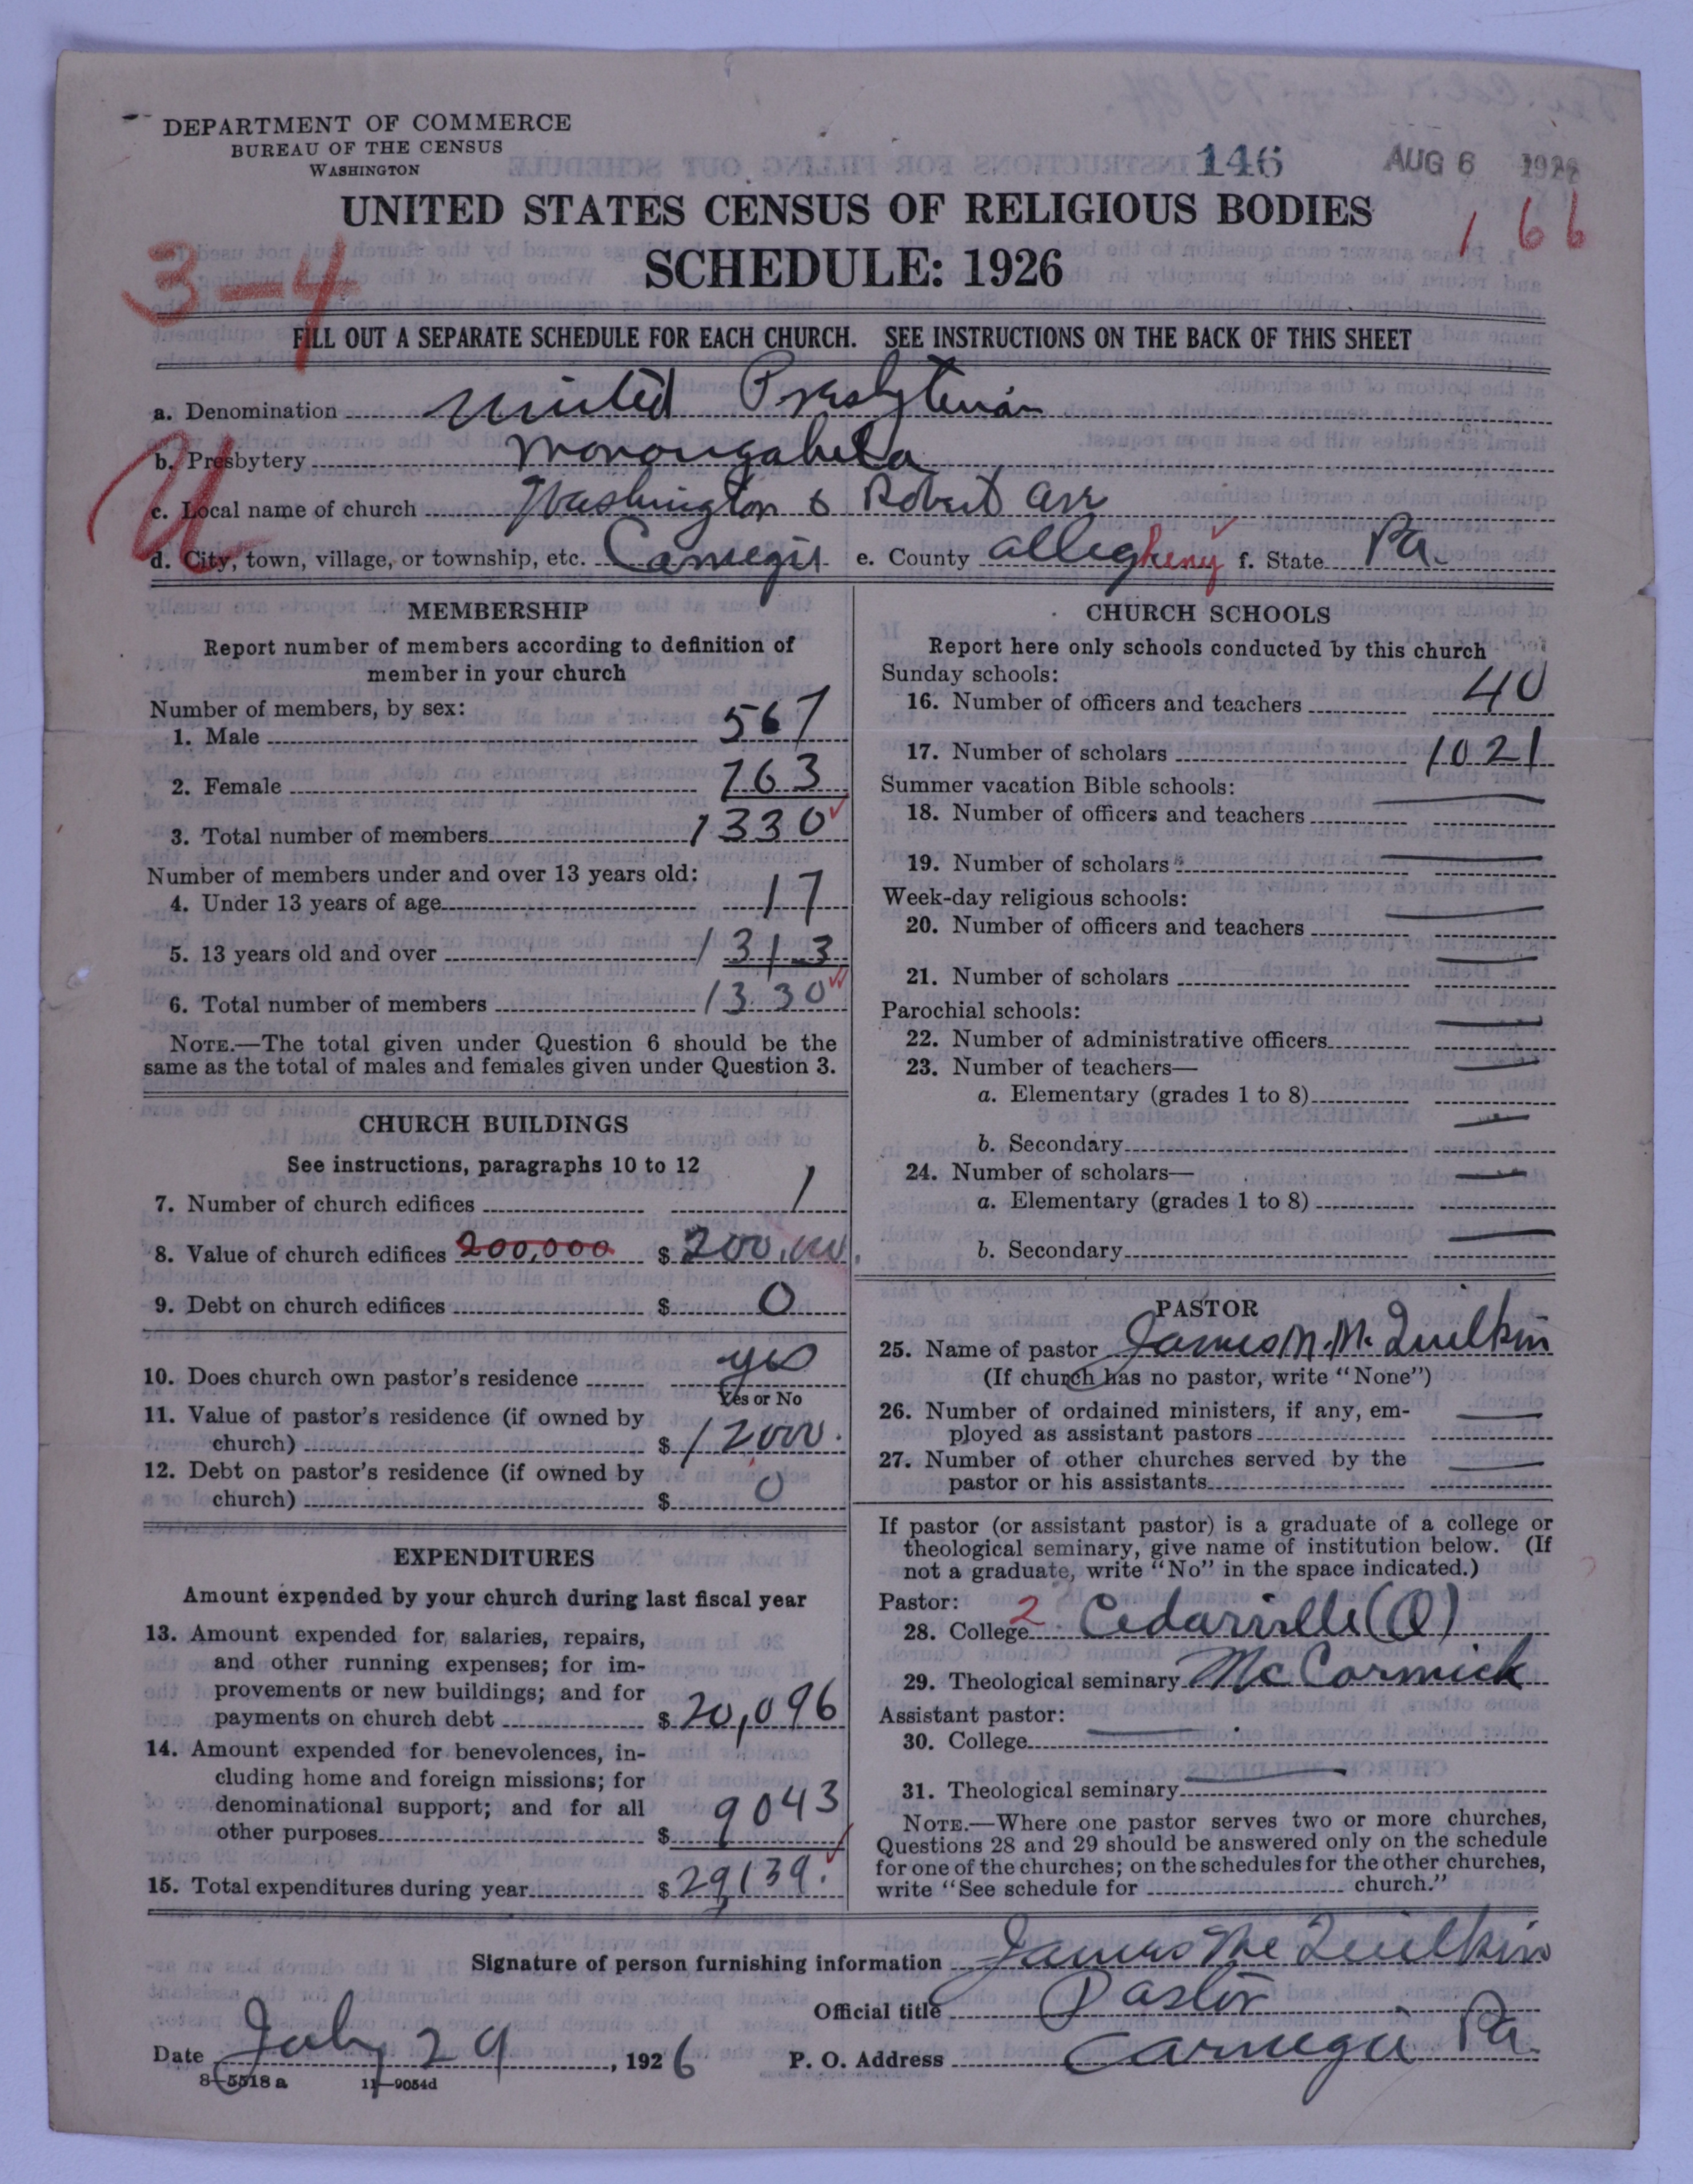 DEPARTMENT OF COMMERCE
BUREAU OF THE CENSUS
WASHINGTON
146 AUG 6 192
UNITED STATES CENSUS OF RELIGIOUS BODIES
166
3-4
SCHEDULE: 1926
FILL OUT A SEPARATE SCHEDULE FOR EACH CHURCH. SEE INSTRUCTIONS ON THE BACK OF THIS SHEET
a. Denomination United Presbyterian
b. Presbytery Monongahela
U
c. Local name of church Washington & Robert
d. City, town, village, or township, etc. Carnegie e. County Allegheny f. State Pa.
MEMBERSHIP
Report number of members according to definition of
member in your church
Number of members, by sex:
1. Male 567
2. Female 763
3. Total number of members 1330
Number of members under and over 13 years old:
4. Under 13 years of age 17
5. 13 years old and over 1313
6. Total number of members 1330
NOTE.—The total given under Question 6 should be the
same as the total of males and females given under Question 3.
CHURCH BUILDINGS
See instructions, paragraphs 10 to 12
7. Number of church edifices 1
8. Value of church edifices 200,000 $ 200,000.
9. Debt on church edifices $ 0
10. Does church own pastor's residence yes
Yes or No
11. Value of pastor's residence (if owned by
church) $ 12000.
12. Debt on pastor's residence (if owned by
church) $ 0
EXPENDITURES
Amount expended by your church during last fiscal year
13. Amount expended for salaries, repairs,
and other running expenses; for im-
provements or new buildings; and for
payments on church debt $ 20,096
14. Amount expended for benevolences, in-
cluding home and foreign missions; for
denominational support; and for all
other purposes $ 9043
15. Total expenditures during year $ 29,139.
CHURCH SCHOOLS
Report here only schools conducted by this church
Sunday schools:
16. Number of officers and teachers 40
17. Number of scholars 1021
Summer vacation Bible schools:
18. Number of officers and teachers
19. Number of scholars
Week-day religious schools:
20. Number of officers and teachers
21. Number of scholars
Parochial schools:
22. Number of administrative officers
23. Number of teachers—
a. Elementary (grades 1 to 8)
b. Secondary
24. Number of scholars—
a. Elementary (grades 1 to 8)
b. Secondary
PASTOR
25. Name of pastor James M. McQuilkin
(If church has no pastor, write "None")
26. Number of ordained ministers, if any, em-
ployed as assistant pastors
27. Number of other churches served by the
pastor or his assistants
If pastor (or assistant pastor) is a graduate of a college or
theological seminary, give name of institution below. (If
not a graduate, write "No" in the space indicated.)
Pastor:
28. College 2 Cedarville (O)
29. Theological seminary McCormick
Assistant pastor:
30. College
31. Theological seminary
NOTE.—Where one pastor serves two or more churches,
Questions 28 and 29 should be answered only on the schedule
for one of the churches; on the schedules for the other churches,
write "See schedule for church."
Signature of person furnishing information James McQuilkin
Official title Pastor
Date July 29, 1926 P. O. Address Carnegie Pa.
8—5518a 11—9054d